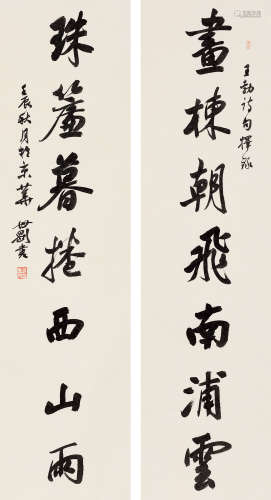 畫棟朝飛南浦雲
王勃诗句擇錄
珠簾暮捲西山雨
壬辰秋月於京華